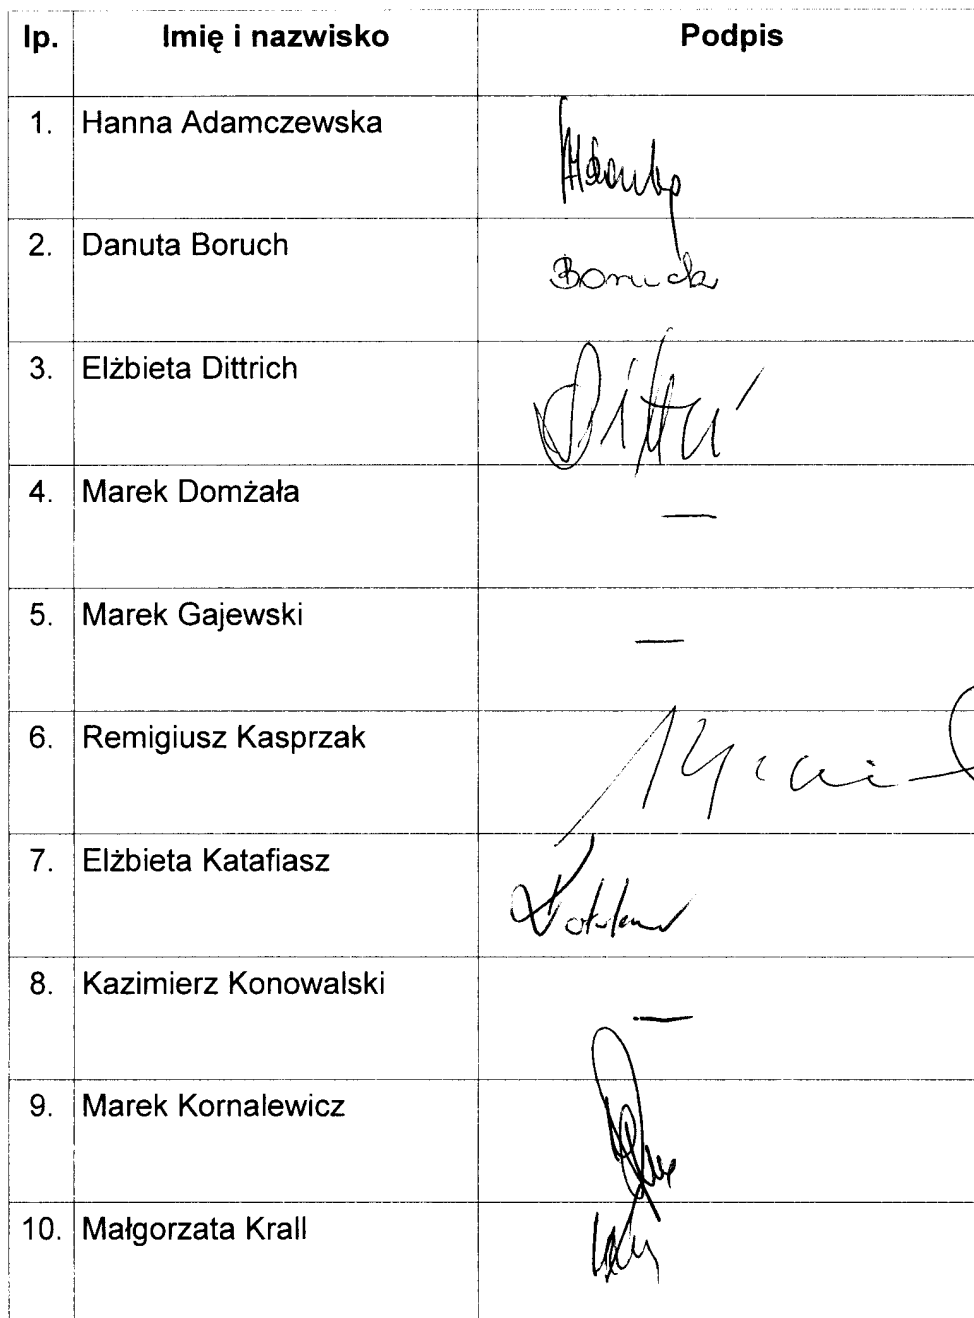 lp. Imię i nazwisko Podpis
1. Hanna Adamczewska
2. Danuta Boruch Boruch
3. Elżbieta Dittrich
4. Marek Domżała —
5. Marek Gajewski —
6. Remigiusz Kasprzak
7. Elżbieta Katafiasz
8. Kazimierz Konowalski —
9. Marek Kornalewicz
10. Małgorzata Krall